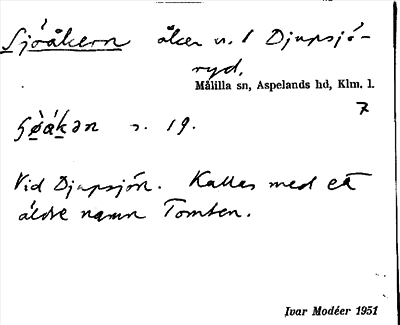 Sjöåkern åker n. 1 Djupsjö-
ryd.
Målilla sn, Aspelands hd, Klm. l.
7
s. 19.
Vid Djupsjön. Kallas med ett
äldre namn Tomten.
Ivar Modéer 1951